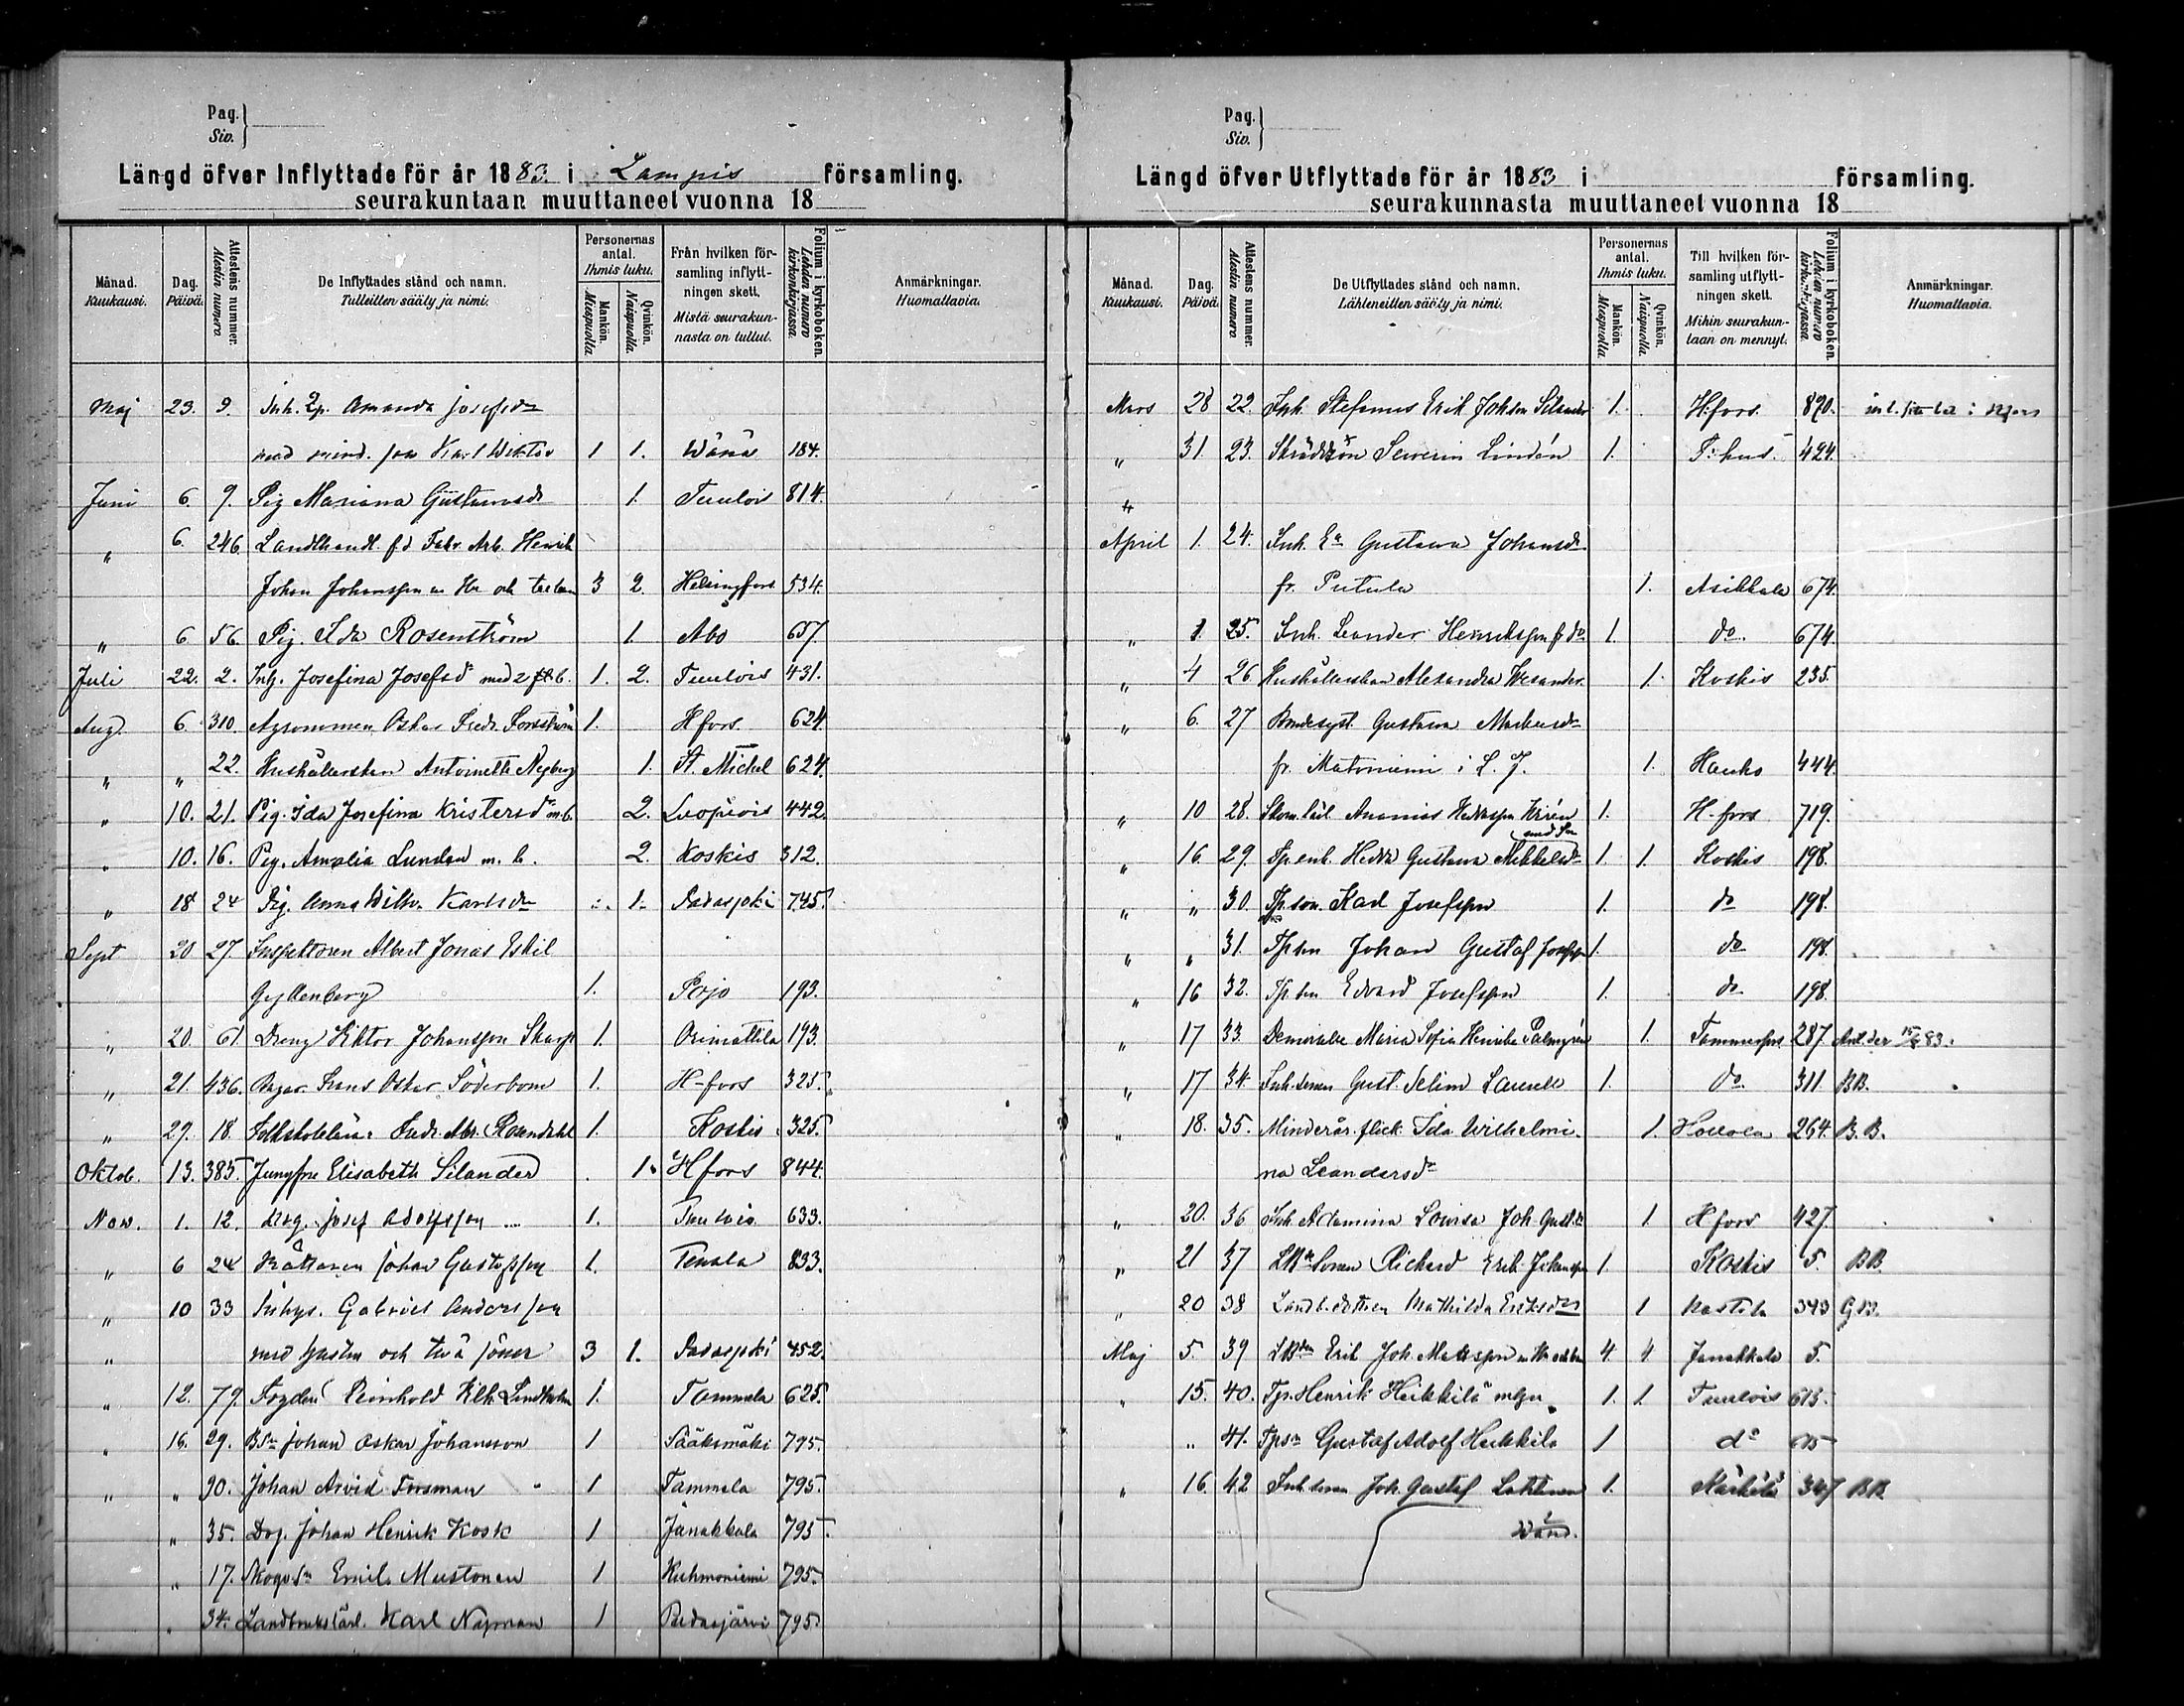 Pag.
Siv.
Längd öfver Inflyttade för år 1883 i Lampis församling.
seurakuntaan muuttaneet vuonna 18
Månad. Kuukausi.
Dag. Päivä.
Attestens nummer. Atestin numero
De Inflyttades stånd och namn. Tulleitten sääty ja nimi.
Personernas antal. Ihmis luku.
Mankön. Miespuolia
Qvinkön. Naispuolia.
Från hvilken församling inflyttningen skett. Mistä seurakunnasta on tullut.
Folium i kyrkoboken. Lehden numero kirkonkirjassa
Anmärkningar. Huomattavia.
Maj 23. 9. Inh. Amanda Josefsdr
med mind. son Karl Wiktor 1 1. Wånå 184.
Juni 6. 9. Pig Mariana Gustavsdr 1. Tuulois 814.
" 6. 246 Landthandl. fd Fabr. Arb. Henrik
Johan Johansson m Hu och tre barn 3 2. Helsingfors 534.
" 6 56 Pig. Ida Rosenström 1. Åbo 657.
Juli 22. 2. Inh. Josefina Josefsdr med 2 b. 1. 2. Tuulois 431.
Aug. 6. 310. Agronomen Oskar Fredr. Forsström 1. Hfors. 624
" " 22. Hushållerskan Antoinette Nyberg 1. St. Michel 624.
" 10. 21. Pig. Ida Josefina Kristersdr m.b. 2. Luopiois 442.
" 10. 16. Pig. Amalia Lundan m. b. 2. Koskis 312.
" 18 24 Pig. Anna Wilh. Karlsdr 1. Padasjoki 745.
Sept 20 27. Inspektoren Albert Jonas Eskil
Gyllenberg 1. Pojo 193.
" 20. 61. Dreng Viktor Johansson Skarp 1. Orimattila 193.
" 21. 436. Bagar. Frans Oskar Söderbom 1. H-fors 325.
" 29. 18. Folkskolelär. Fredr. Abr. Rosendahl 1. Koskis 325.
Oktob. 13. 385. Jungfru Elisabeth Silander 1. Hfors 844.
Nov. 1. 12. Drg. Josef Adolfsson 1. Tuulois 633.
" 6 24 Rättaren Johan Gustafsson 1. Tenala 833.
" 10 33 Inhys. Gabriel Andersson
" med hustru och två söner 3 1. Padasjoki 452.
" 12. 79. Fogden Reinhold Vilh. Lindholm 1. Tammela 625.
" 16. 29. BSn Johan Oskar Johansson 1 Sääksmäki 795.
" " 30. Johan Arvid Forsman 1 Tammela 795.
" 35. Drg. Johan Henrik Kosk 1 Janakkala 795.
" 17. Skogv Sn Emil Mustonen 1 Kuhmoniemi 795.
" 34. Landbrukslärl. Karl Nyman 1 Pudasjärvi 795.
Pag.
Siv.
Längd öfver Utflyttade för år 1883 i församling.
seurakunnasta muuttaneet vuonna 18
Månad. Kuukausi.
Dag. Päivä.
Attestens nummer. Atestin numero
De Utflyttades stånd och namn. Lähteneitten sääty ja nimi.
Personernas antal. Ihmis luku.
Mankön. Miespuolia
Qvinkön. Naispuolia.
Till hvilken församling utflyttningen skett. Mihin seurakuntaan on mennyt.
Folium i kyrkoboken. Lehden numero kirkonkirjassa.
Anmärkningar. Huomattavia.
Mars 28 22. Inh. Stefanus Erik Johsson Silander 1. H.fors. 870.
" 31. 23. Skräddsön Severin Lindén 1. T:hus 424.
"
April 1. 24. Inh. Ea Gustava Johansdr
fr. Putula 1. Asikkala 674.
" 1. 25. Inh. Leander Henriksson fr do 1. do 674.
" 4 26. Hushållerskan Alexandra Wesander 1. Koskis 235.
" 6. 27 Bondesyst. Gustava Markusdr
fr. Matoniemi i L. J. 1. Hauho 444.
" 10 28. Skom.lärl. Ananias Hedrsson Virén 1. H-fors 719.
med son
" 16 29. Tp.enk. Hedda Gustava Mikkelsdr 1 1. Koskis 198.
" " 30. Tp.son. Karl Josefsson 1. do 198.
" " 31. Tp.son Johan Gustaf Josefsson 1. do 198.
" 16 32. Tp.son Edvard Josefsson 1. do 198.
" 17 33. Demoiselle Maria Sofia Henrika Palmgrén 1. Tammerfors 287. 15/6 83.
" 17 34. Inh.sonen Gust. Selim Laurell 1. do 311. BB.
" 18. 35. Minderår. flick. Ida Wilhelmi-
na Leandersdr 1. Hollola 264. B.B.
" 20. 36 Inh Adamina Lovisa Joh. Gust.dr 1. Hfors 427.
" 21 37 LBdeSonen Richard Erik Johansson 1. Koskis 5. BB.
" 20 38 Landb.dottren Mathilda Eriksdr 1 Nastola 343
Maj 5. 39 LBden Erik Joh. Matsson m Hu och barn 4 4 Janakkala 5.
" 15. 40. Tp. Henrik Heikkilä 1. 1. Tuulois 615.
" 41. Tpsn Gustaf Adolf Heikkilä 1 do 615
" 16. 42 Inh.sonen Joh. Gustaf Lahtinen 1. Kärkölä 347 BB.
Vänd.